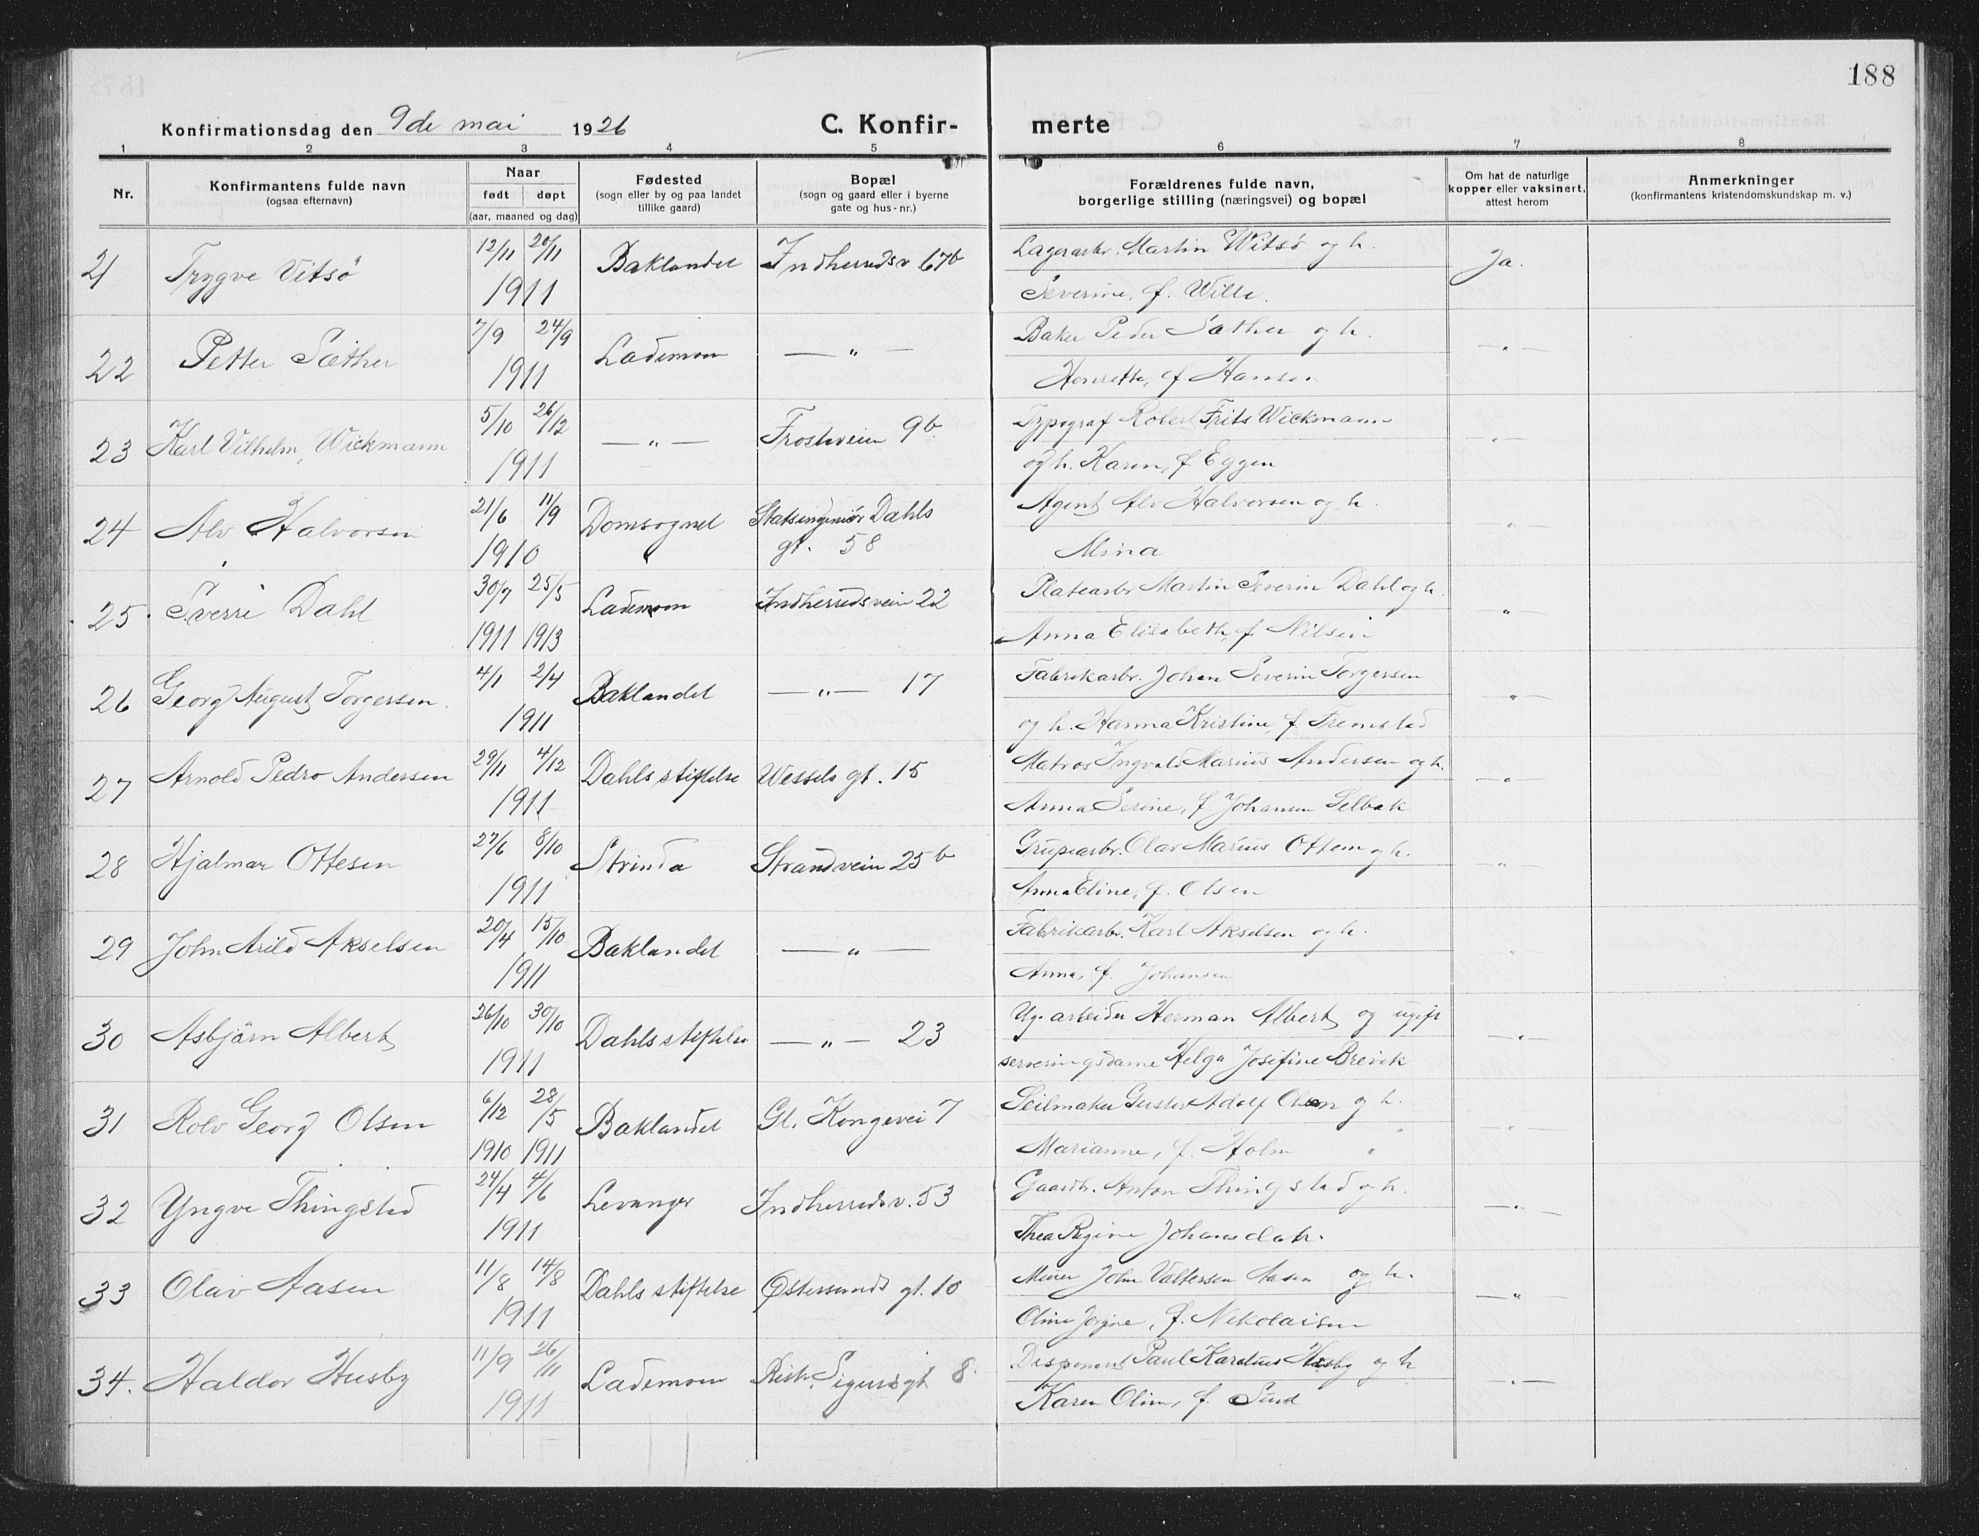 188
Konfirmationsdag den 9de mai 1926 C. Konfirmerte
1 2 3 4 5 6 7 8
Nr. Konfirmantens fulde navn (ogsaa efternavn) Naar født døpt (aar, maaned og dag) Fødested (sogn eller by og paa landet tillike gaard) Bopæl (sogn og gaard eller i byerne gate og hus-nr.) Forældrenes fulde navn, borgerlige stilling (næringsvei) og bopæl Om hat de naturlige kopper eller vaksinert, attest herom Anmerkninger (konfirmantens kristendomskundskap m. v.)
21 Trygve Vitsø 12/11 20/11 Baklandet Indherredsv. 67b Lagerarb. Martin Witsø og h. Ja.
1911 Severine, f. Wille.
22 Petter Sæther 7/9 24/9 Lademoen — " — Baker Peder Sæther og h. — " —
1911 Henrette, f Hansen
23 Karl Vilhelm Wickmann 5/10 26/12 — " — Frostaveien 9b Typograf Robert Frits Wickmann — " —
1911 og h. Karen, f. Eggen
24 Alv Halvorsen 21/6 11/9 Domsognet Statsingeniør Dahls Agent Alv Halvorsen og h. " —
1910 gt. 58 Mina
25 Sverre Dahl 30/7 25/5 Lademoen Indherredsveien 22 Platearbr Martin Severin Dahl og h. " —
1911 1913 Anna Elisabeth, f Nilsen
26 Georg August Torgersen. 4/1 2/4 Baklandet — " — 17 Fabrikarbr. Johan Severin Torgersen " —
1911 og h. Hanna Kristine, f Fremstad
27 Arnold Pedro Andersen 29/11 4/12 Dahls stiftelse Wessels gt. 15 Matros Ingvald Marius Andersen og h. — " —
1911 Anna Serine, f. Johansen Selbak
28 Hjalmar Ottesen 27/6 8/10 Strinda Strandveien 25b Grupearbr. Olav Marius Ottem og h. " —
1911 Anna Eline, f. Olsen
29 John Arild Akselsen 20/4 15/10 Baklandet — " — Fabrikarbr. Karl Akselsen og h. " —
1911 Anna, f. Johansen
30 Asbjørn Albert 26/10 30/10 Dahls stiftelse — " — 23 Ug. arbeider Herman Albert og ugift — " —
1911 serveringsdame Helga Josefine Brevik
31 Rolv Georg Olsen 6/12 28/5 Baklandet Gl. Kongevei 7 Seilmaker Gustav Adolf Olsen og h. — " —
1910 1911 Marianne, f. Holm "
32 Yngve Thingstad 24/4 4/6 Levanger Indherredsv. 53 Gaardbr. Anton Thingstad og h. — " —
1911 Thea Regine Johansdatr.
33 Olav Aasen 11/8 14/8 Dahls stiftelse Østersunds gt. 10 Murer John Valtersen Aasen og h. — " —
1911 Oline Jørgine, f. Nikolaisen
34. Haldor Husby 11/9 26/11 Lademoen Rich. Sigurds gt 8. Disponent Paul Karelius Husby og h — " —
1911 Karen Oline, f. Sund